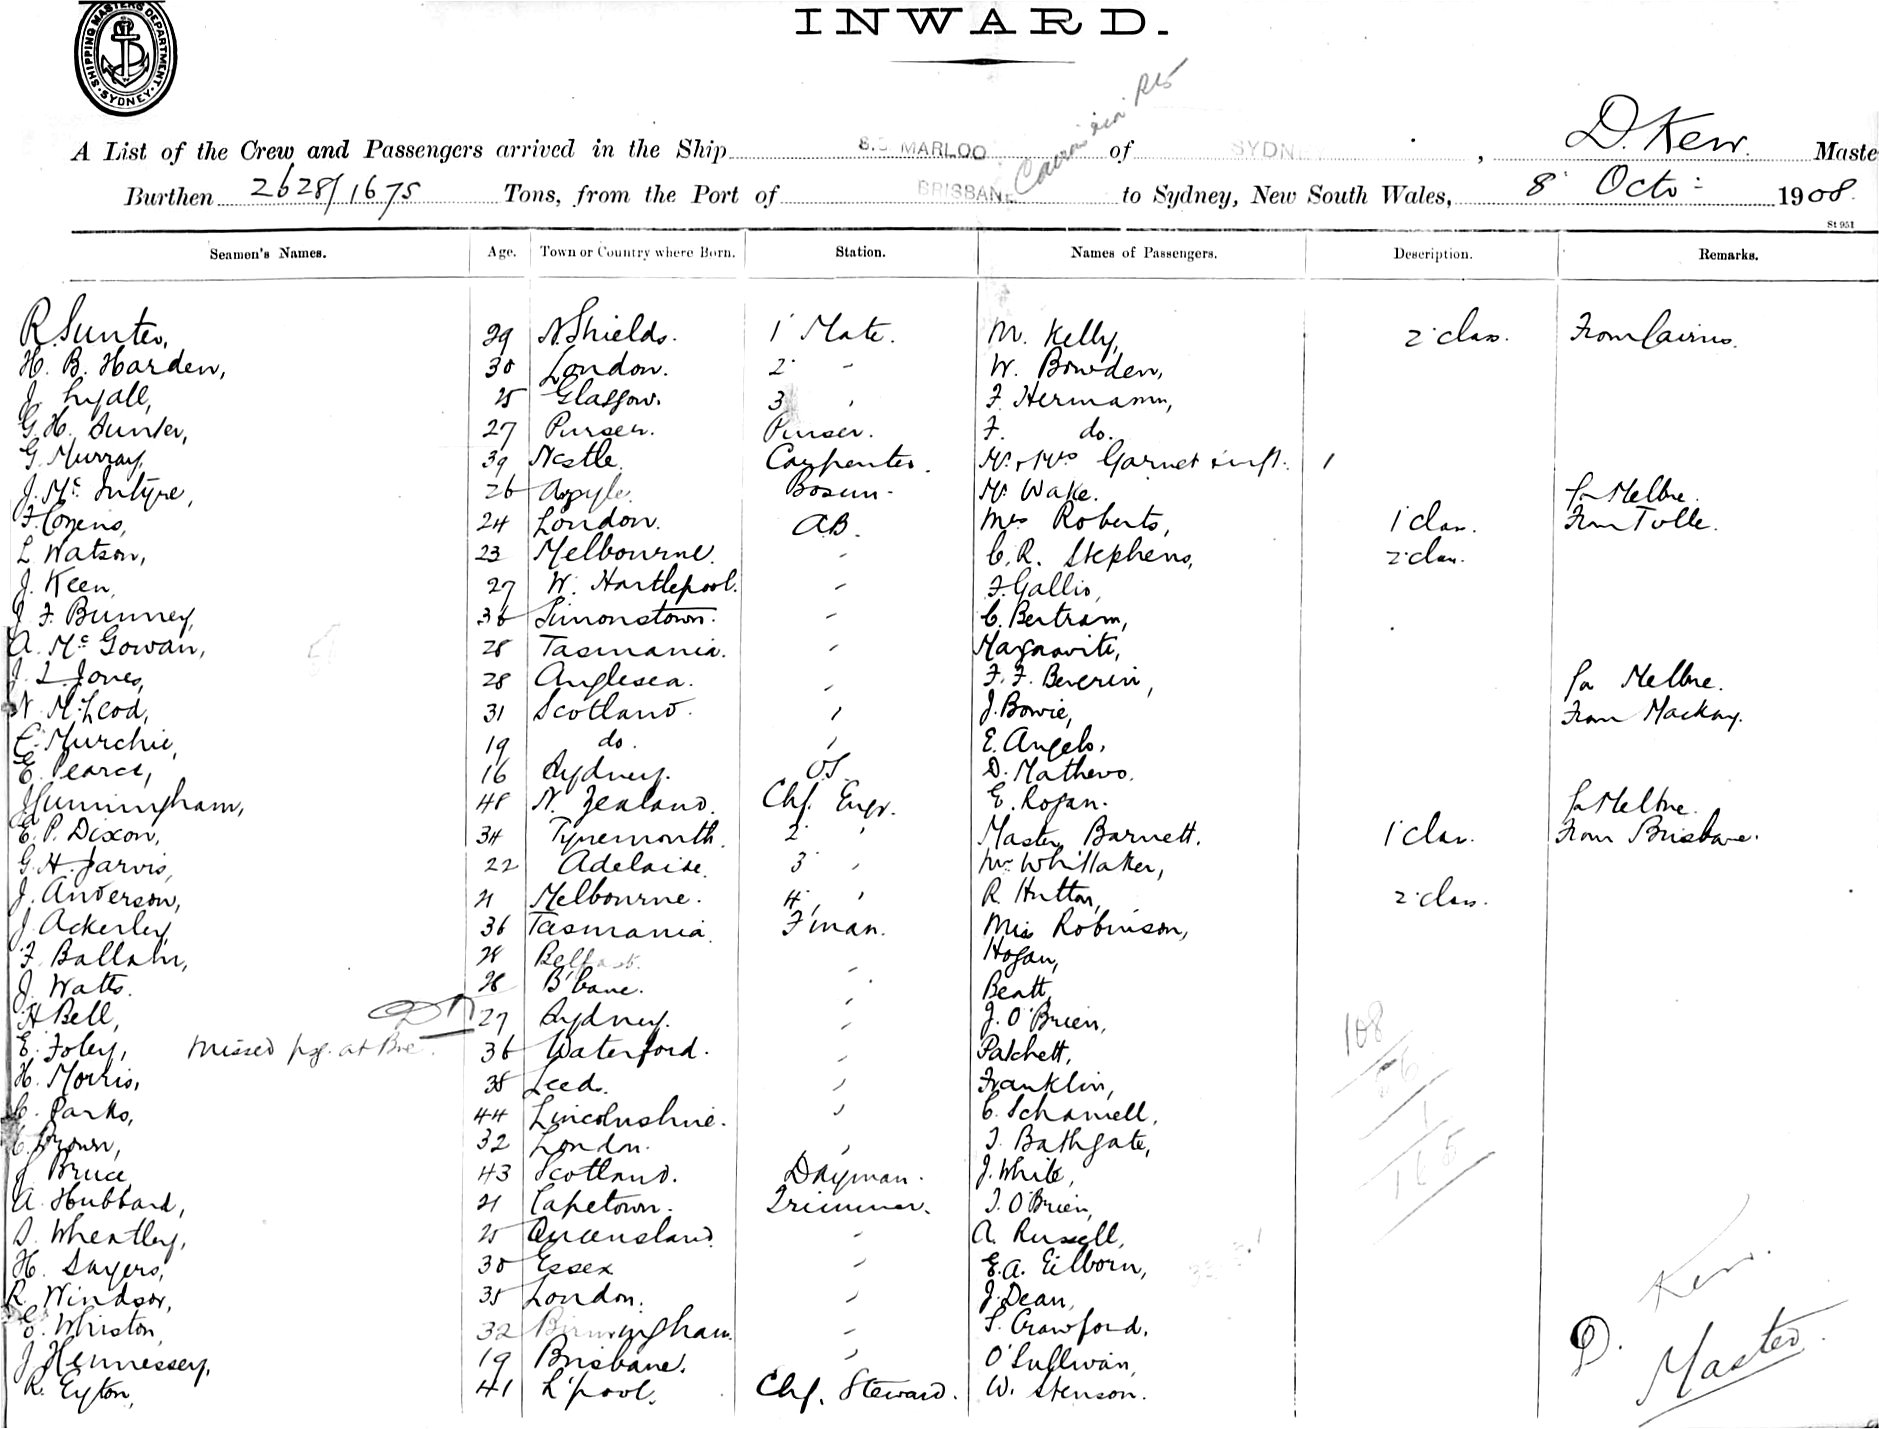 SHIPPING MASTERS DEPARTMENT
SYDNEY
INWARD.
A List of the Crew and Passengers arrived in the Ship S.S. MARLOO of SYDNEY, D. Kew. Maste
Burthen 2628/1675 Tons, from the Port of BRISBANE Cairns to Sydney, New South Wales, 8 Octo 1908.
St 951
Seamen's Names. Age. Town or Country where Born. Station. Names of Passengers. Description. Remarks.
R. Sunter, 29 N. Shields. 1 Mate. M. Kelly, 2 class. From Cairns.
H. B. Harden, 30 London. 2 " W. Bowden,
J. Lyall, 25 Glasgow. 3 " F. Hermann,
G. H. Sunter, 27 Purser. Purser. F. do.
G. Murray, 39 Nestle. Carpenter. Mr. & Mrs Garnet & inft. 1
J. Mc Intyre, 26 Argyle. Bosun. Mr Wake. for Melbne.
F. Cozens, 24 London. AB. Mrs Roberts, 1 class. From Tville.
L. Watson, 23 Melbourne. " C. R. Stephens, 2 class.
J. Keen, 27 W. Hartlepool. " F. Gallio,
J. F. Bunney, 36 Simonstown. " C. Bertram,
A. Mc Gowan, 28 Tasmania. "
J. L. Jones, 28 Anglesea. " F. F. Beverin, for Melbne.
N. McLeod, 31 Scotland. " J. Bowie, From Mackay.
C. Murchie, 19 do. " E. Angelo,
E. Pearce, 16 Sydney. OS. D. Mathews.
J. Cunningham, 48 N. Zealand. Chf. Engr. E. Rogan. for Melbne.
E. P. Dixon, 34 Tynemouth. 2 " Master Barnett. 1 class. From Brisbane.
G. H. Jarvis, 22 Adelaide. 3 " Mr Whittaker,
J. Anderson, 21 Melbourne. 4 " R. Hutton, 2 class.
J. Ackerley, 36 Tasmania. F'man. Miss Robinson,
F. Ballam, 28 Belfast. " Hogan,
J. Watts. 26 B'bane. " Beatt,
H. Bell, 27 Sydney. " J. O'Brien,
E. Foley, Missed psg. at Bne. 36 Waterford. " Patchett,
H. Morris, 38 Leeds. " Franklin,
C. Parks, 44 Lincolnshire. " C. Schamell,
C. Brown, 32 London. " J. Bathgate,
J. Bruce 43 Scotland. Dayman. J. White,
A. Hubbard, 21 Capetown. Trimmer. J. O'Brien,
S. Wheatley, 25 Queensland. " A. Russell,
H. Sayers, 30 Essex " E. A. Eilborn,
R. Windsor, 35 London. " J. Dean,
E. Whiston, 32 Birmingham. " S. Crawford.
J. Hennessey, 19 Brisbane. " O'Sullivan,
R. Eyton, 41 L'pool. Chf. Steward. W. Stenson.
108
165
D. Kew.
Master.